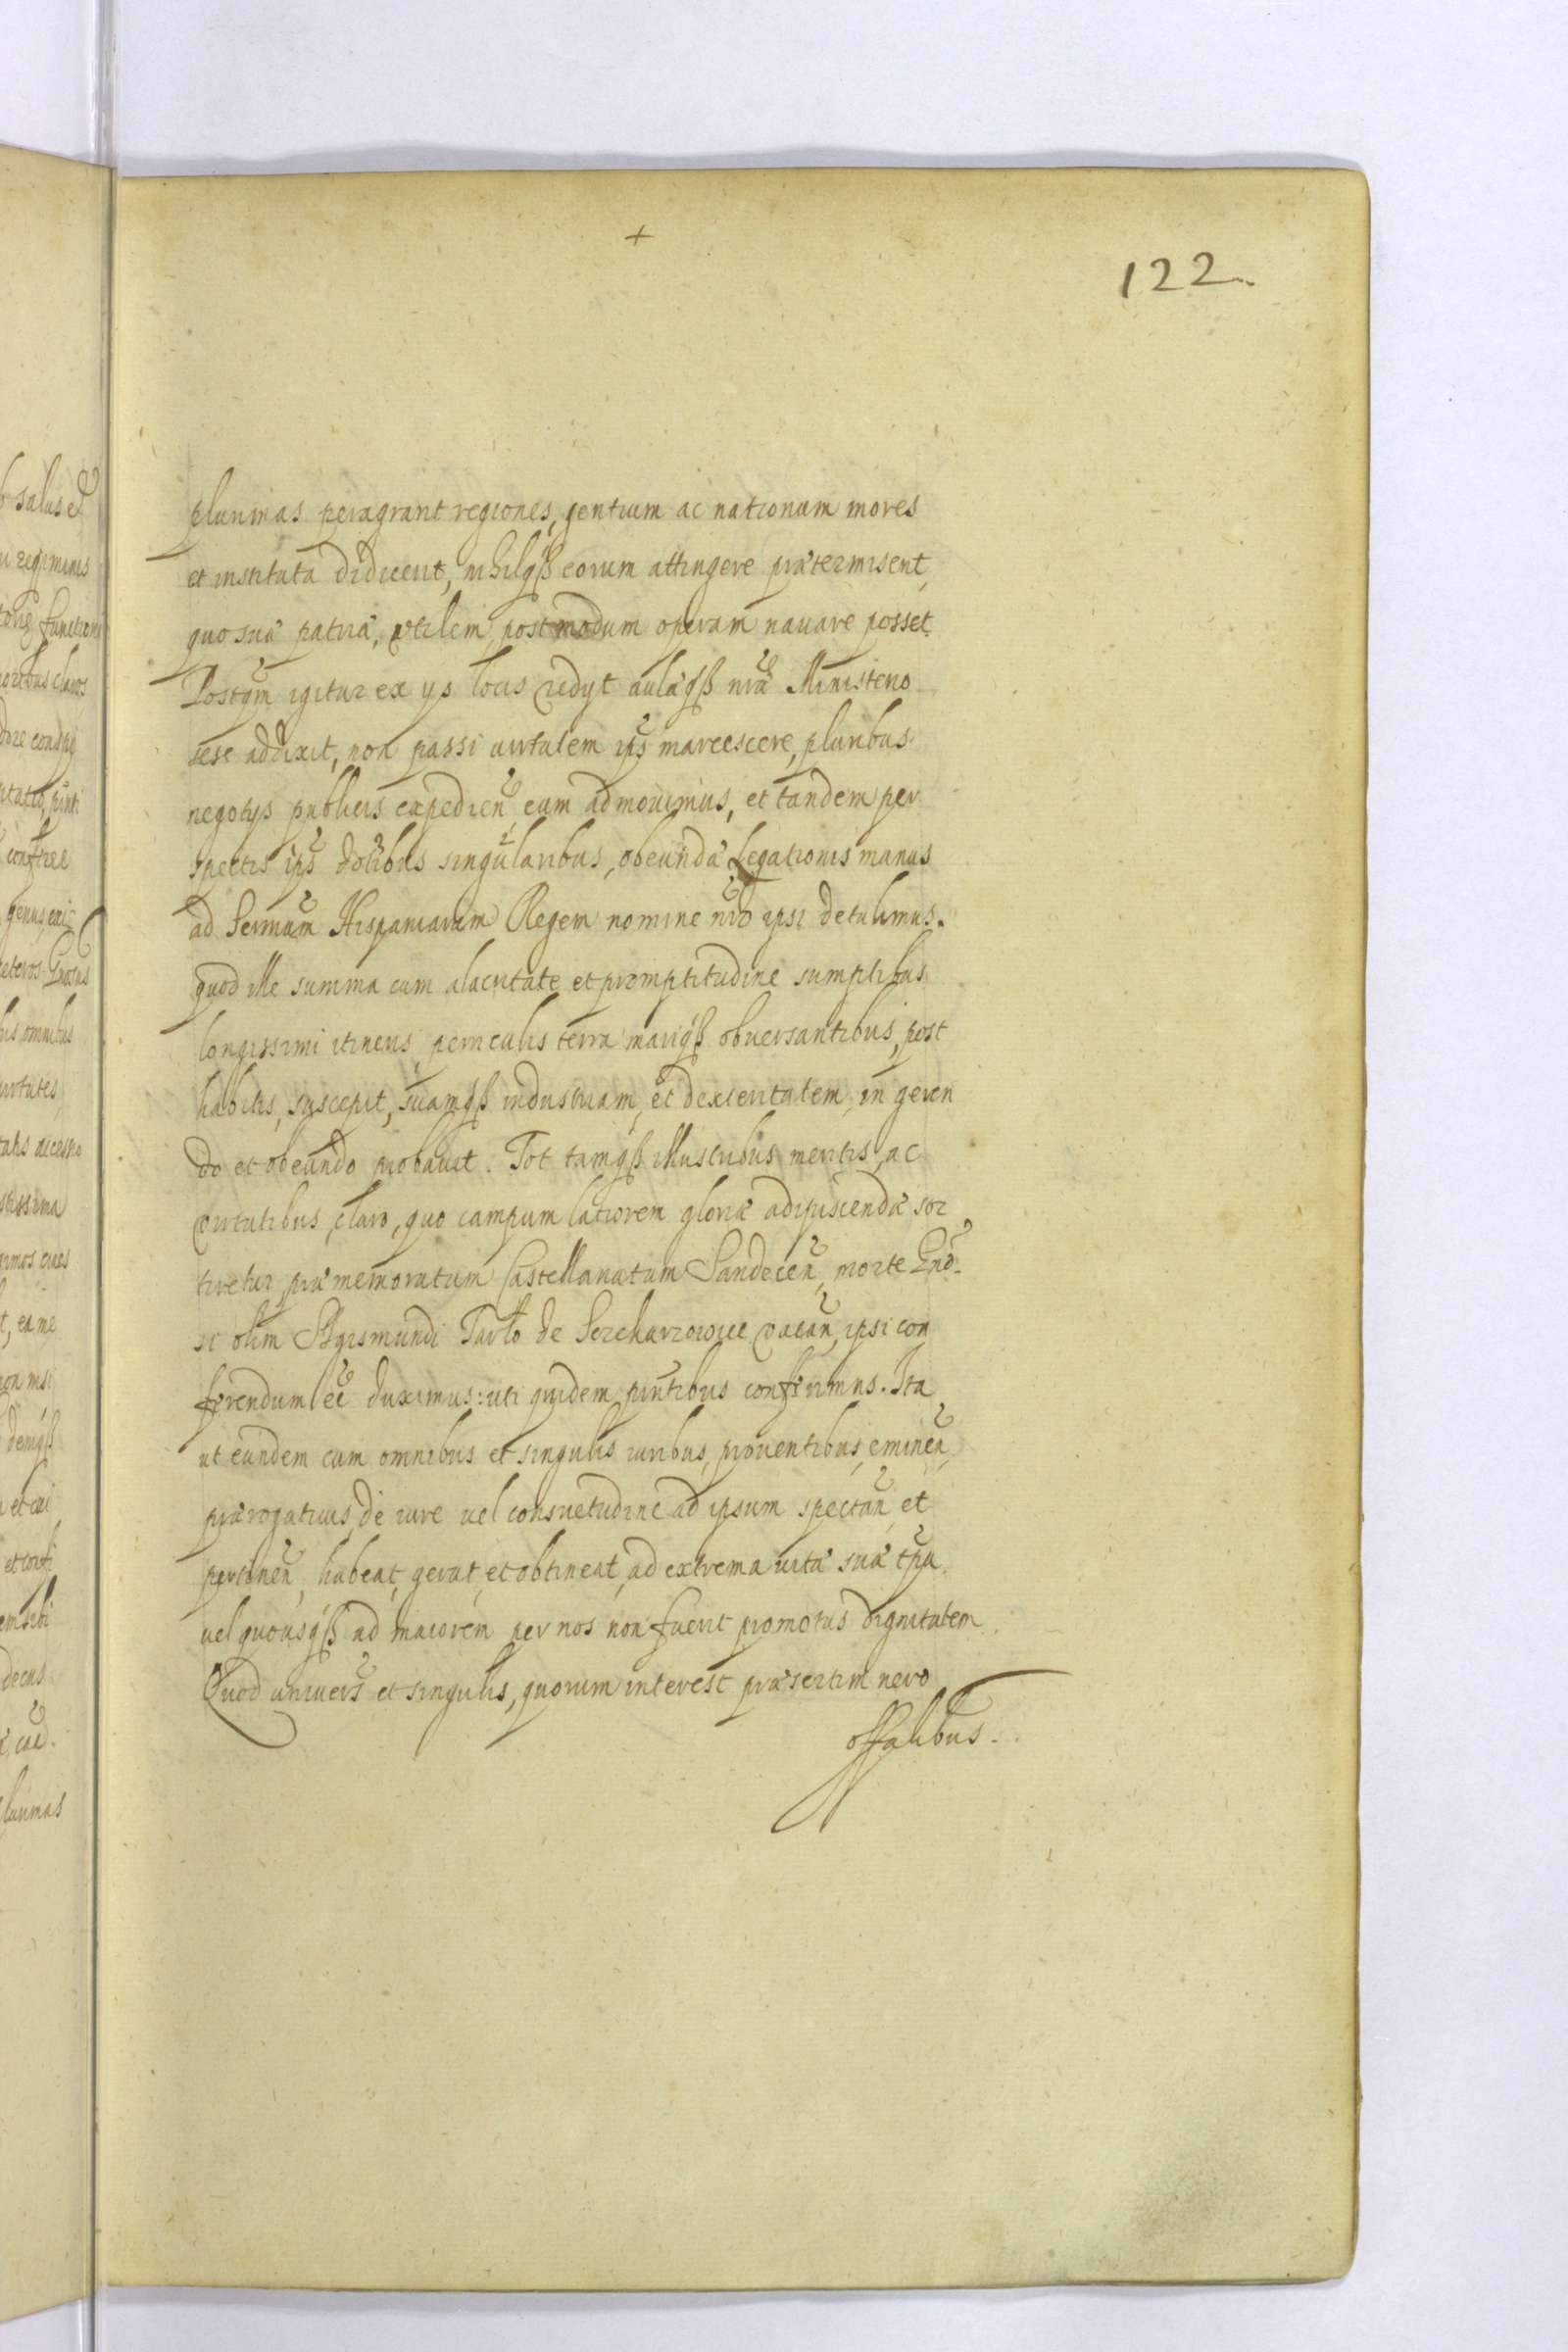 +
122.
plurimas peragrarit regiones, gentium ac nationum mores
et instituta didicerit, nihilq́ß eorum attingere prætermiserit,
quo suæ patriæ, vtilem postmodum operam nauare posset.
Postqm̃ igitur ex ijs locis redijt aulæq́ß nr̃æ Ministerio
sese addixit, non passi uirtutem ips̃ marcescere, pluribus
negotijs publicis expedieñ eum admouimus, et tandem per
spectis ips̃ dotibus singularibus, obeundæ Legationis manus
ad Sermum̃ Hispaniarum Regem nomine nr̃o ipsi detulimus.
quod ille summa cum alacritate et promptitudine sumptibus
longissimi itineris periculis terra mariq́ß obuersantibus, post
habitis, suscepit, suamq́ß industriam, et dexteritatem, in geren
do et obeundo probauit. Tot tamq́ß illustribus meritis, ac
virtutibus, claro, quo campum latiorem gloriæ adipiscendæ sor
tiretur, præmemoratum Castellanatum Sandeceñ, morte Gn̄o-
si olim Sigismundi Tarło de Sczekarzowice vacan̄, ipsi con
ferendum eē̃ duximus: uti quidem pñtibus conferimus. Ita
ut eundem cum omnibus et singulis iuribus, prouentibus, eminen̄,
prærogatiuis, de iure uel consuetudine ad ipsum spectan̄, et
pertinen̄, habeat, gerat, et obtineat, ad extrema uitæ suæ tp̃a
uel quousq́ß ad maiorem per nos non fuerit promotus dignitatem
Quod uniuers̃ et singulis, quorum interest præsertim uero
offalibus.
b salus et
regiminis
functioni
claros
dore conspi
pñti
confere
genus
ceteros Gnosus
bus omnibus
uirtutes
stissima
simos ciues
t, ea me
non nisi
deniq́ß
et cui
decus
plurimas